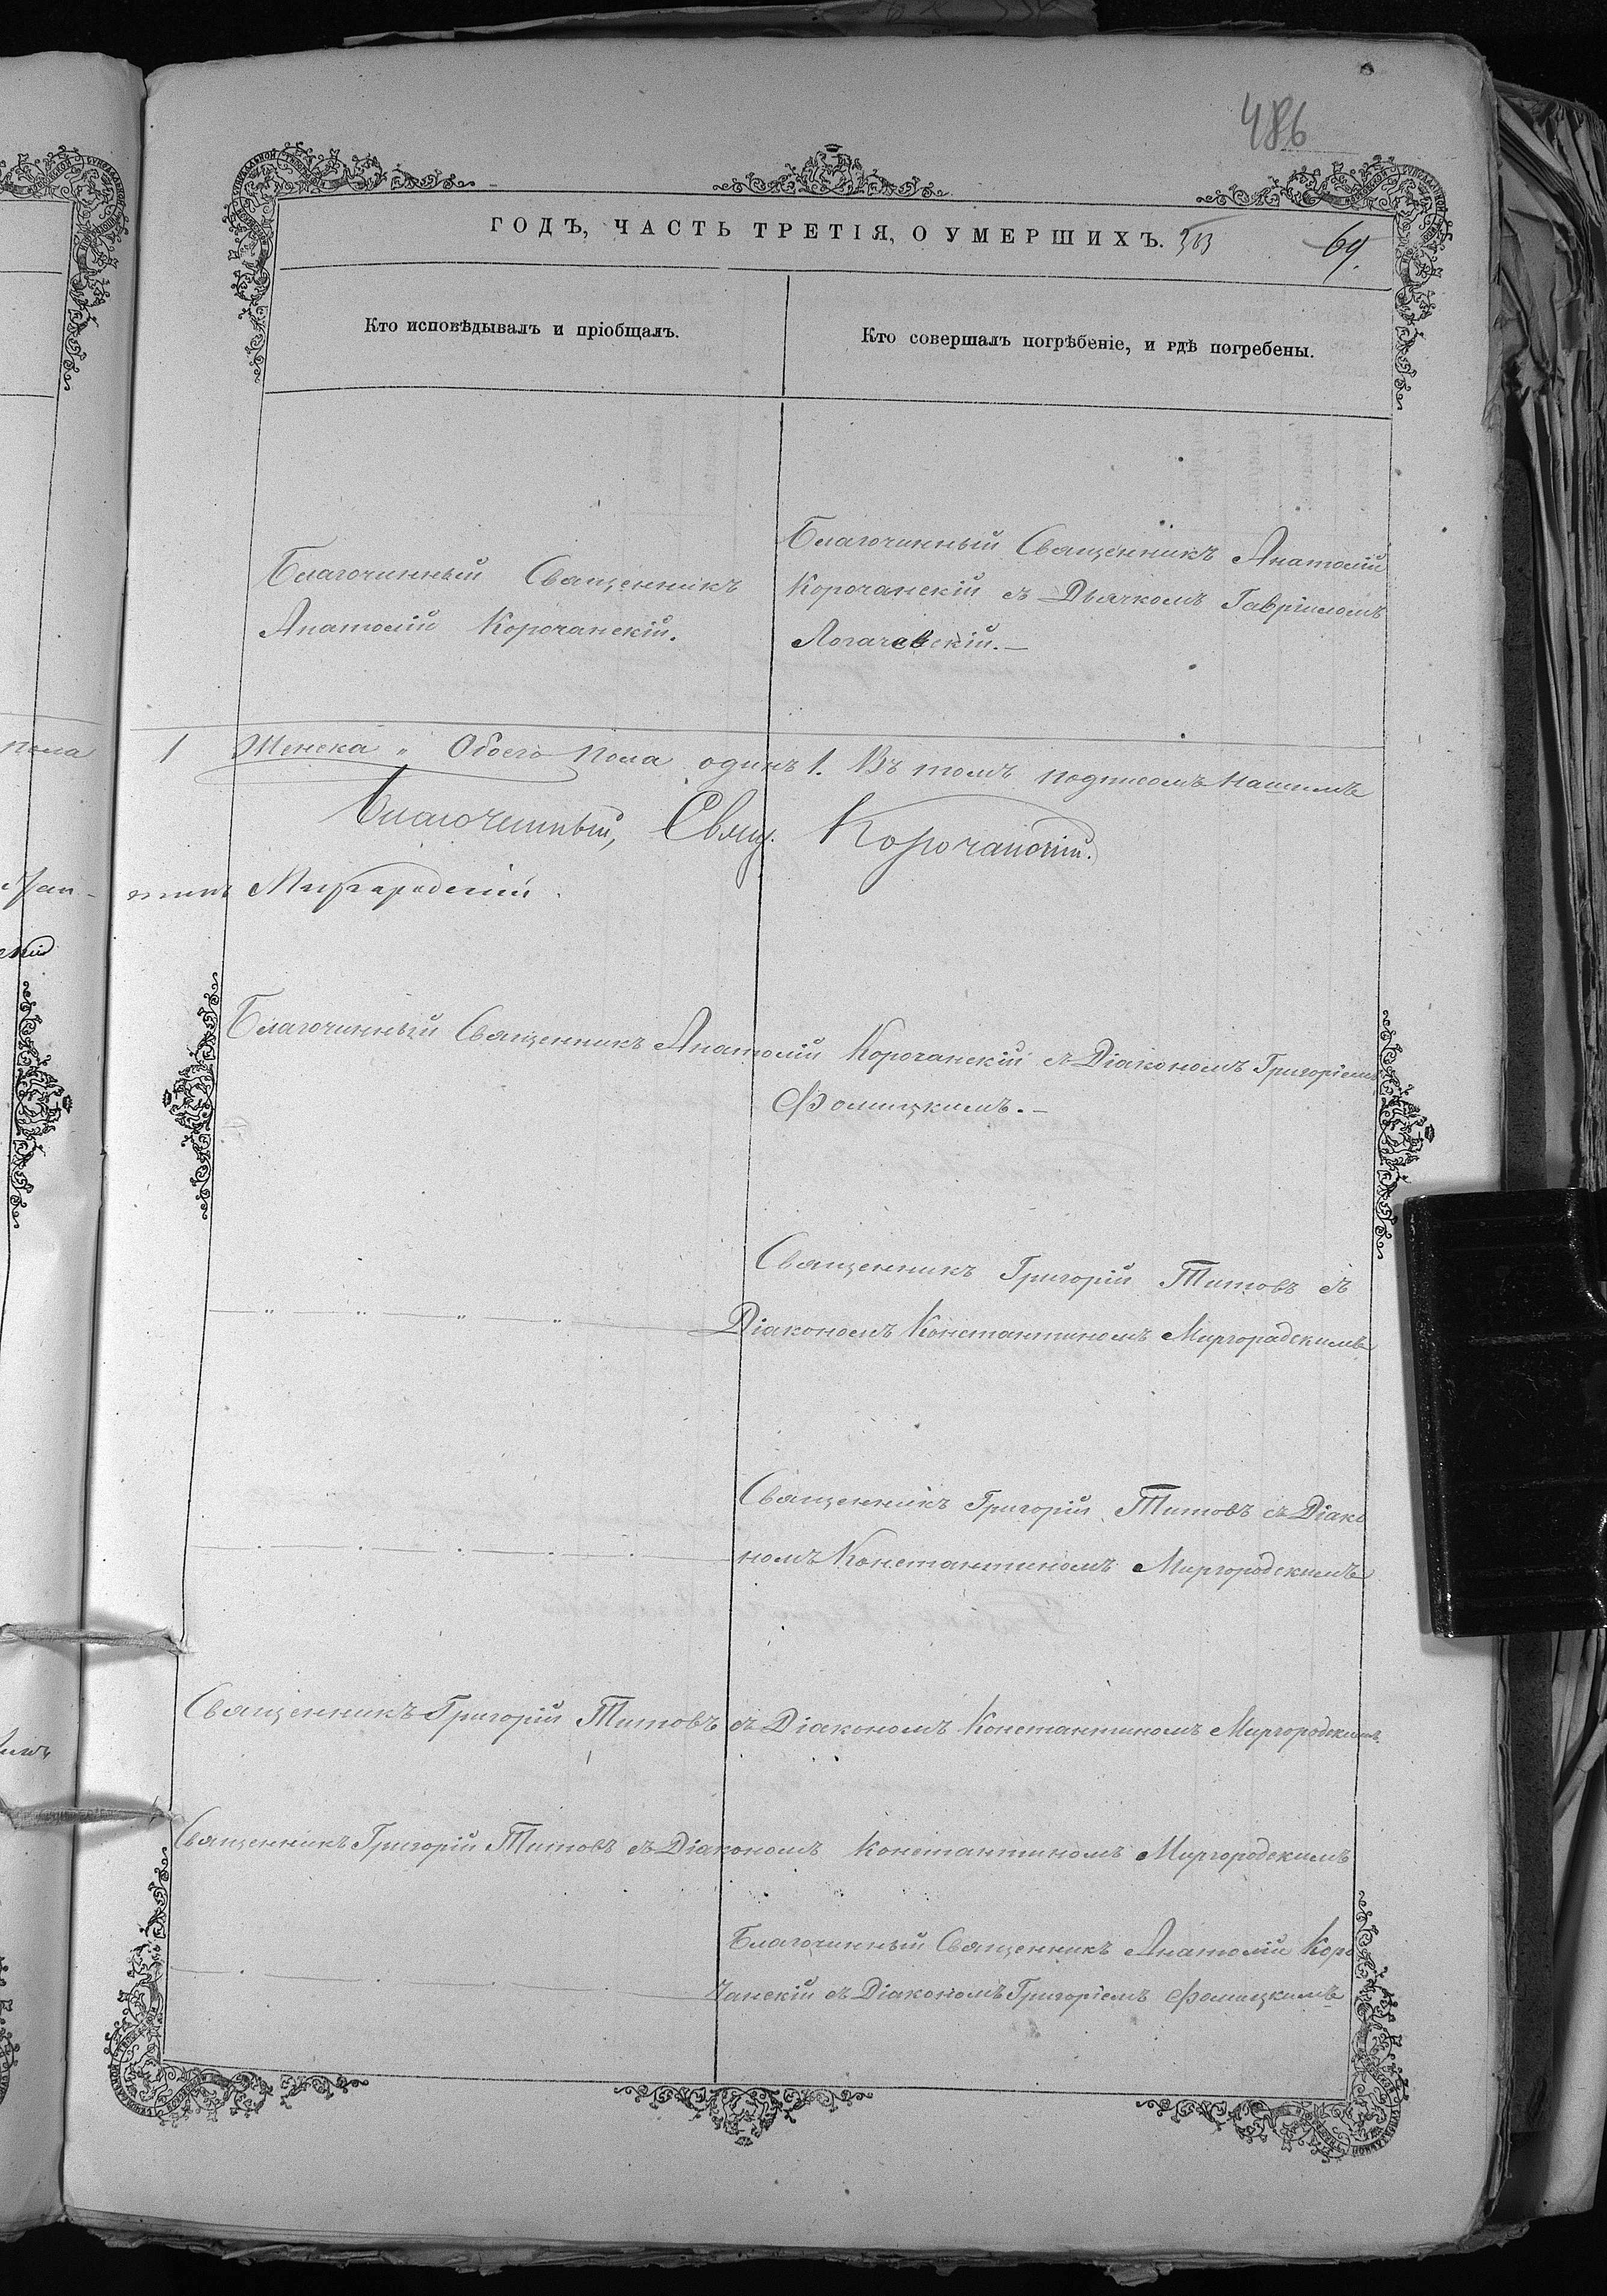 486
ГОДЪ, ЧАСТЬ ТРЕТІЯ, О УМЕРШИХЪ. 303 69.
Кто исповѣдывалъ и пріобщалъ.
Кто совершалъ погрѣбеніе, и гдѣ погребены.
Благочинный Священникъ
Анатолій Корочанскій.
Благочинный Священникъ Анатолій
Корочанскій съ Дьячкомъ Гавріиломъ
Логачевскій.—
пола 1 Женска " Обоего пола одинъ 1. Въ томъ подписомъ нашимъ
Благочинный, Свящ. Корочанскій.
Миргородскій.
Благочинный Священникъ Анатолій Корочанскій съ Діакономъ Григоріемъ
Фомицкимъ.—
Священникъ Григорій Титовъ съ
— " — " — " — " — Діакономъ Константиномъ Миргорадскимъ
Священникъ Григорій Титовъ съ Діако
— . — . — . — . — . — номъ Константиномъ Миргородскимъ
Священникъ Григорій Титовъ съ Діакономъ Константиномъ Миргородскимъ.
Священникъ Григорій Титовъ съ Діакономъ Константиномъ Миргородскимъ
Благочинный Священникъ Анатолій Коро
— . — . — . — чанскій съ Діакономъ Григоріемъ Фомицкимъ